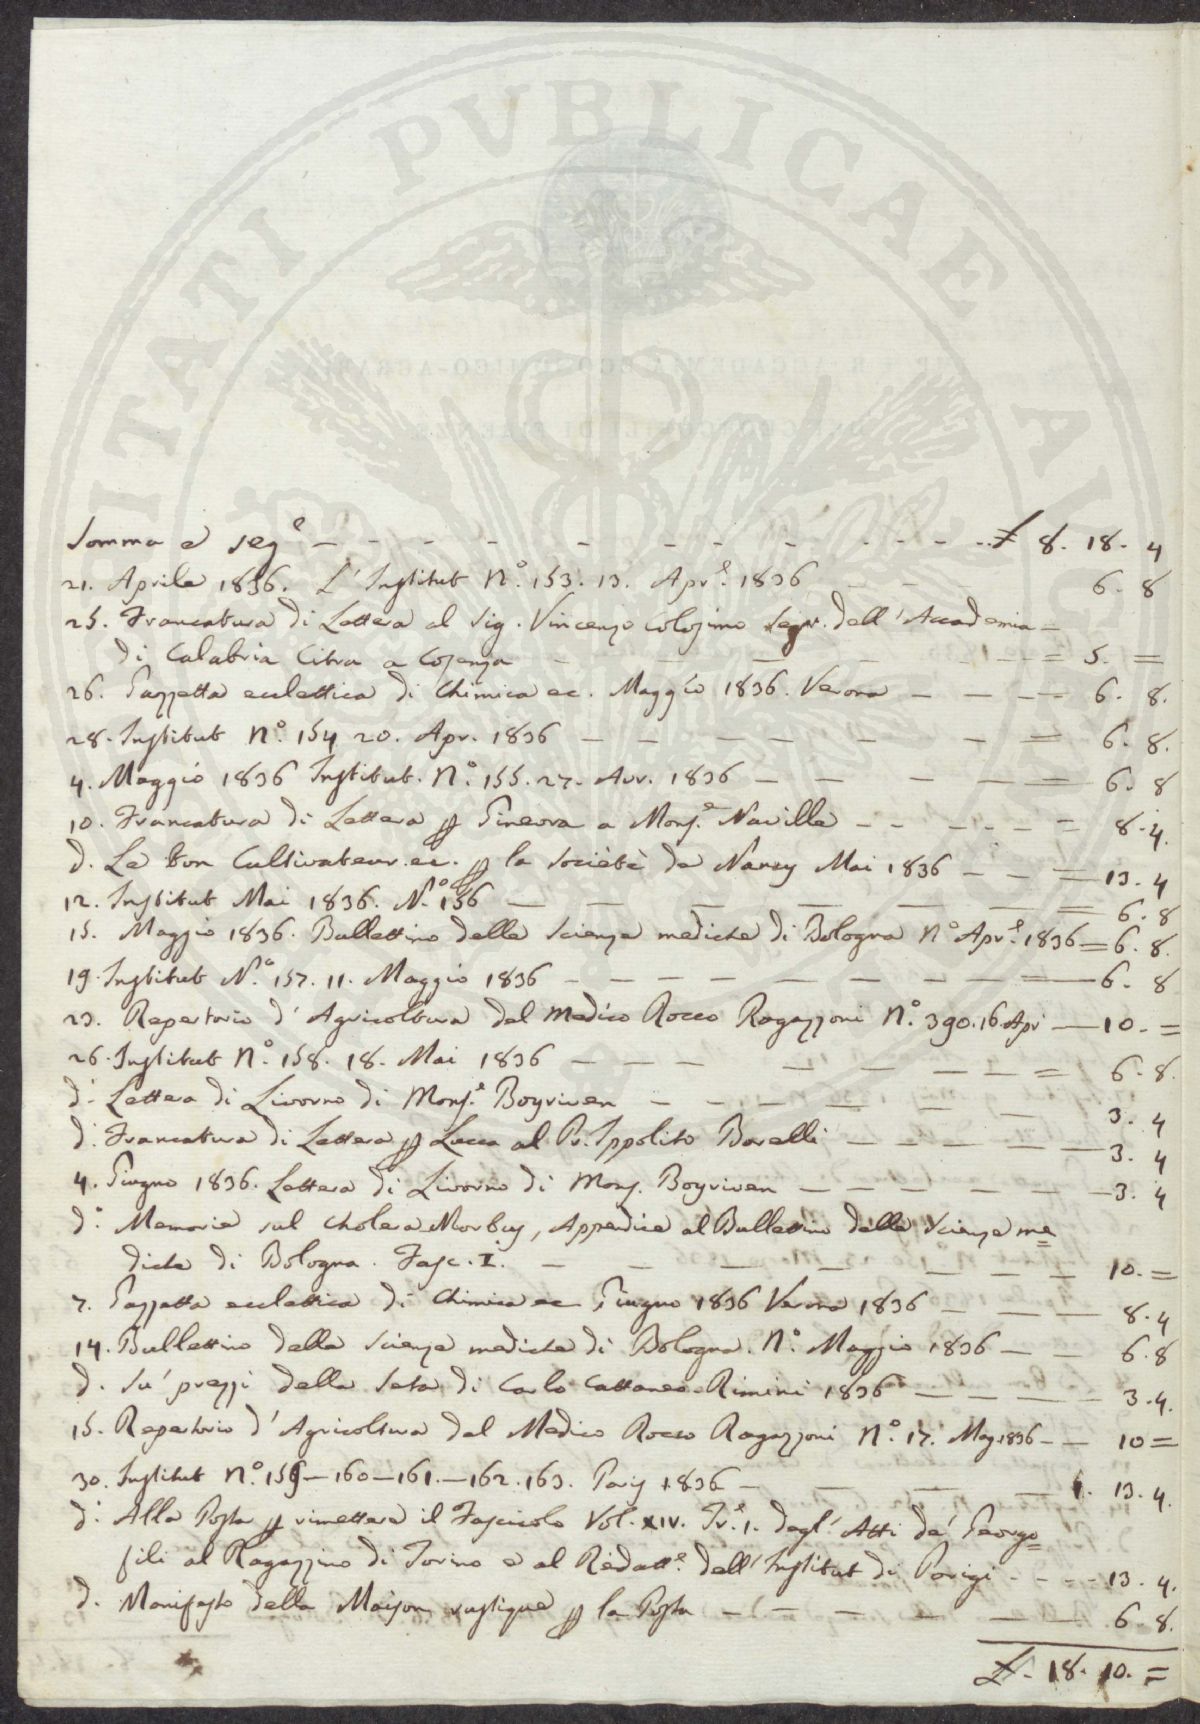 PVBLICAE
Somma e segᵉ - - - - - - - - - - - - £ 8. 18. 4
21. Aprile 1836. L'Institut N.° 153. 13. Aprᵉ. 1836 - - 6. 8
25. Francatura di Lettera al Sig. Vincenzo Colosimo Segr. dell'Accademia =
di Calabria Citra a Cosenza - - - - - - - = 5. =
26. Gazzetta eclettica di Chimica ec. Maggio 1836. Verona - - - - 6. 8.
28. Institut N.° 154 20. Apr. 1836 - - - - - - - = 6. 8.
4. Maggio 1836 Institut. N.° 155. 27. Avr. 1836 - - - - = 6. 8
10. Francatura di Lettera p Ginevra a Monsᵉ. Naville - - - - - = 8. 4.
d. Le bon Cultivateur ec. p la Société de Nancy Mai 1836 - - = 13. 4
12. Institut Mai 1836. N.° 156 - - - - - - = 6. 8
15. Maggio 1836. Bullettino delle Scienze mediche di Bologna N° Aprᵉ. 1836 = 6. 8.
19. Institut N.° 157. 11. Maggio 1836 - - - - - - - = 6. 8
23. Repertorio d'Agricoltura del Medico Rocco Ragazzoni N.° 390. 16. Apr - 10. =
26. Institut N.° 158. 18. Mai 1836 - - - - - - - = 6. 8.
d.° Lettera di Livorno di Monsᵉ. Boyriven - - - - - - - 3. 4
d.° Francatura di Lettera p Lucca al Pr. Ippolito Borelli - - - - - 3. 4
4. Giugno 1836. Lettera di Livorno di Mons. Boyriven - - - - - - 3. 4
d.° Memorie sul Cholera Morbus, Appendice al Bullettino delle Scienze me=
diche di Bologna. Fasc. I. - - - - - - - 10. =
7. Gazzetta eclettica di Chimica ec Giugno 1836 Verona 1836 - - - 8. 4
14. Bullettino delle Scienze mediche di Bologna. N.° Maggio 1836 - - 6. 8
d. Su' prezzi della Seta di Carlo Cattaneo. Rimini 1836 - - - - 3. 4.
15. Repertorio d'Agricoltura del Medico Rocco Ragazzoni N.° 17. Mag. 1836 - - 10 =
30. Institut N.° 159 - 160 - 161. - 162. 163. Paris 1836 - - - - 1. 13. 4.
d.° Alla Posta p rimettere il Fascicolo Vol. XIV. Trᵉ. 1. degl'Atti de' Georgo=
fili al Ragazzino di Torino e al Redattᵉ. dell'Institut di Parigi - - - = 13. 4.
d. Manifesto della Maison rustique p la Posta - - - - - - 6. 8.
£. 18. 10. =